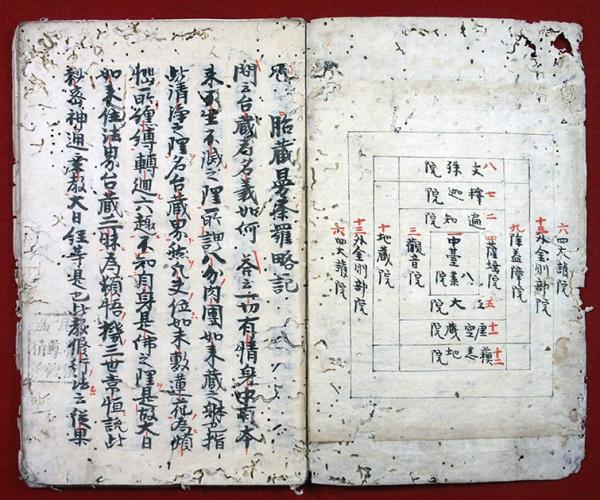 六四大護院
十三外金剛部院
九除蓋障院
八文殊院
七釋迦院
二遍知院
四薩埵院
一中臺八葉院
三觀音院
五大院
十一虚空藏院
十二蘇悉地院
十地藏院
十三外金剛部院
六四大護院
胎藏曼荼羅略記
問云台藏者名義如何 答云一切有情身中有本
来不生不滅之理所謂八分肉團如来藏之躰也指
此清浄之理名台藏界然凡夫位如来敷蓮花為煩
惱所纏縛轉迴六趣不知自身是佛之理是故大日
如来住法界台藏三昧為頓悟機三世常恒説此
秘密神通乗教大日経等是也此教修行法云従果